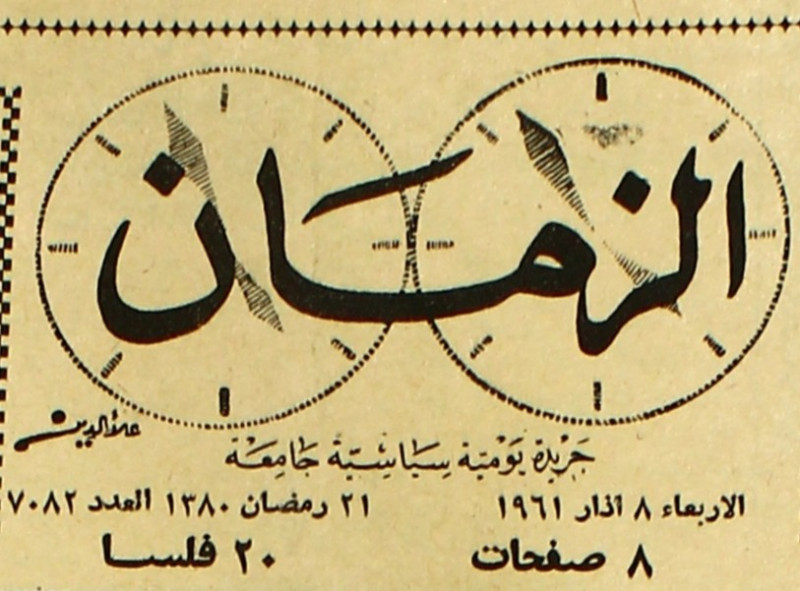 الزمان
علاءالدين
جَرِيْدة يَوْمَيّة سِيَاسِيّة جَامِعَة
الاربعاء ٨ آذار ١٩٦١ ٢١ رمضان ١٣٨٠ العدد ٧٠٨٢
٨ صفحات ٢٠ فلسا